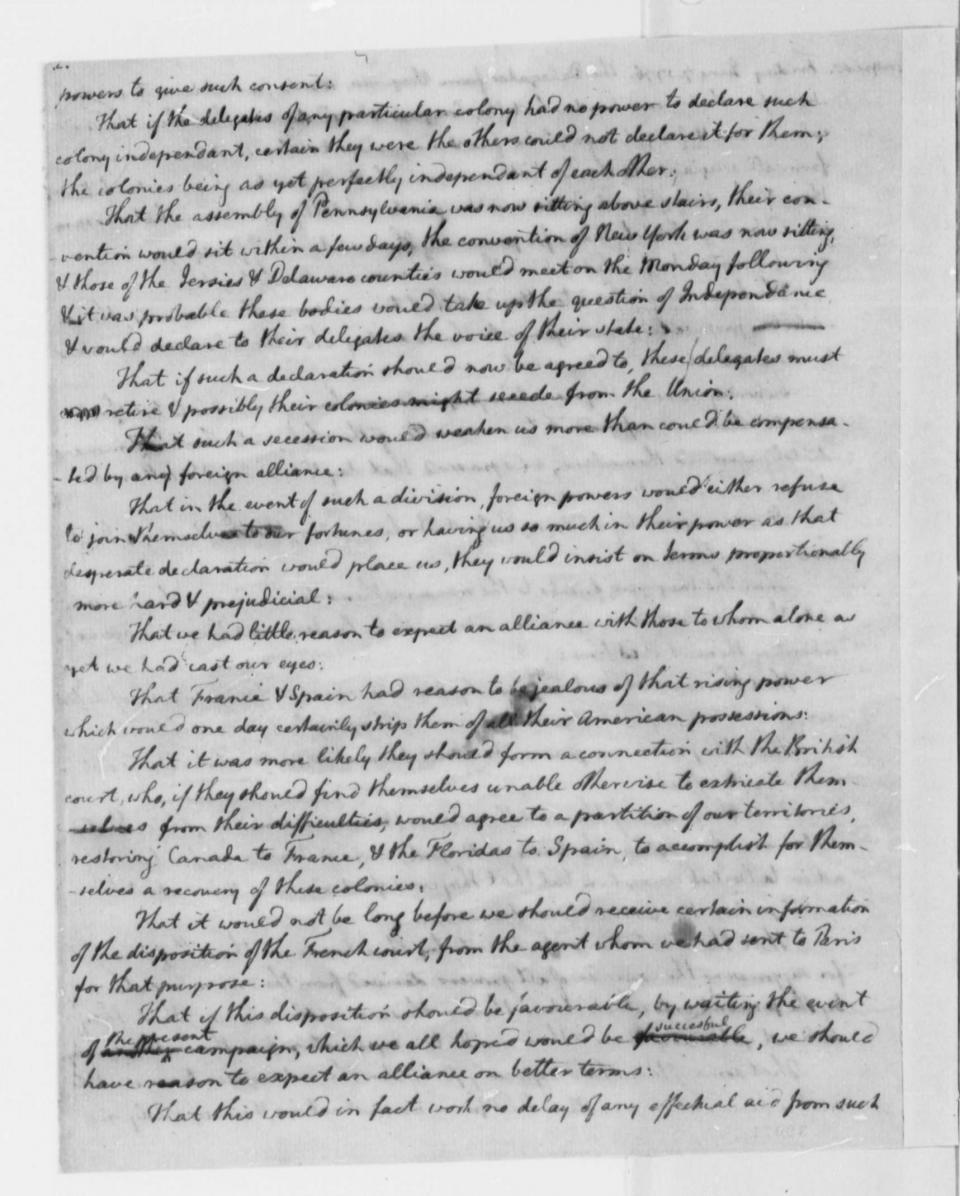 powers to give such consent:
That if the delegates of any particular colony had no power to declare such
colony independant, certain they were the others could not declare it for them;
the colonies being as yet perfectly independant of each other:
That the assembly of Pennsylvania was now sitting above stairs, their con-
-vention would sit within a few days, the convention of New York was now sitting,
& those of the Jersies & Delaware counties would meet on the Monday following
& it was probable these bodies would take up the question of Independance
& would declare to their delegates the voice of their state:
That if such a declaration should now be agreed to, these delegates must
retire & possibly their colonies might secede from the Union:
That such a secession would weaken us more than could be compensa-
-ted by any foreign alliance:
That in the event of such a division, foreign powers would either refuse
to join themselves to our fortunes, or having us so much in their power as that
desperate declaration would place us, they would insist on terms proportionally
more hard & prejudicial:
That we had little reason to expect an alliance with those to whom alone as
yet we had cast our eyes:
That France & Spain had reason to be jealous of that rising power
which would one day certainly strip them of all their American possessions:
That it was more likely they should form a connection with the British
court, who, if they should find themselves unable otherwise to extricate them-
-selves from their difficulties, would agree to a partition of our territories,
restoring Canada to France, & the Floridas to Spain, to accomplish for them-
-selves a recovery of these colonies:
That it would not be long before we should receive certain information
of the disposition of the French court, from the agent whom we had sent to Paris
for that purpose:
That if this disposition should be favourable, by waiting the event
the present successful
of another campaign, which we all hoped would be favourable, we should
have reason to expect an alliance on better terms:
That this would in fact work no delay of any effectual aid from such